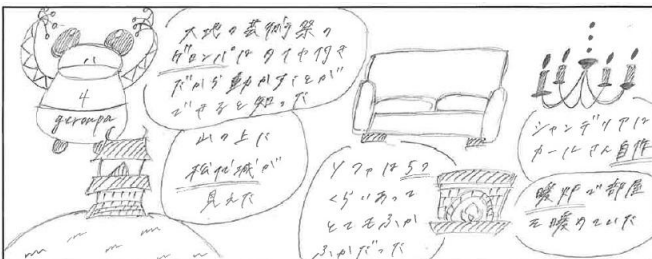 大地の芸術祭の
ゲロンパはタイヤ付き
だから動かすことが
できると知った
4
geronpa
山の上に
松代城が
見えた
ソファは5つ
くらいあって
とてもふか
ふかだった
シャンデリアは
カールさん自作
暖炉で部屋
を暖めていた